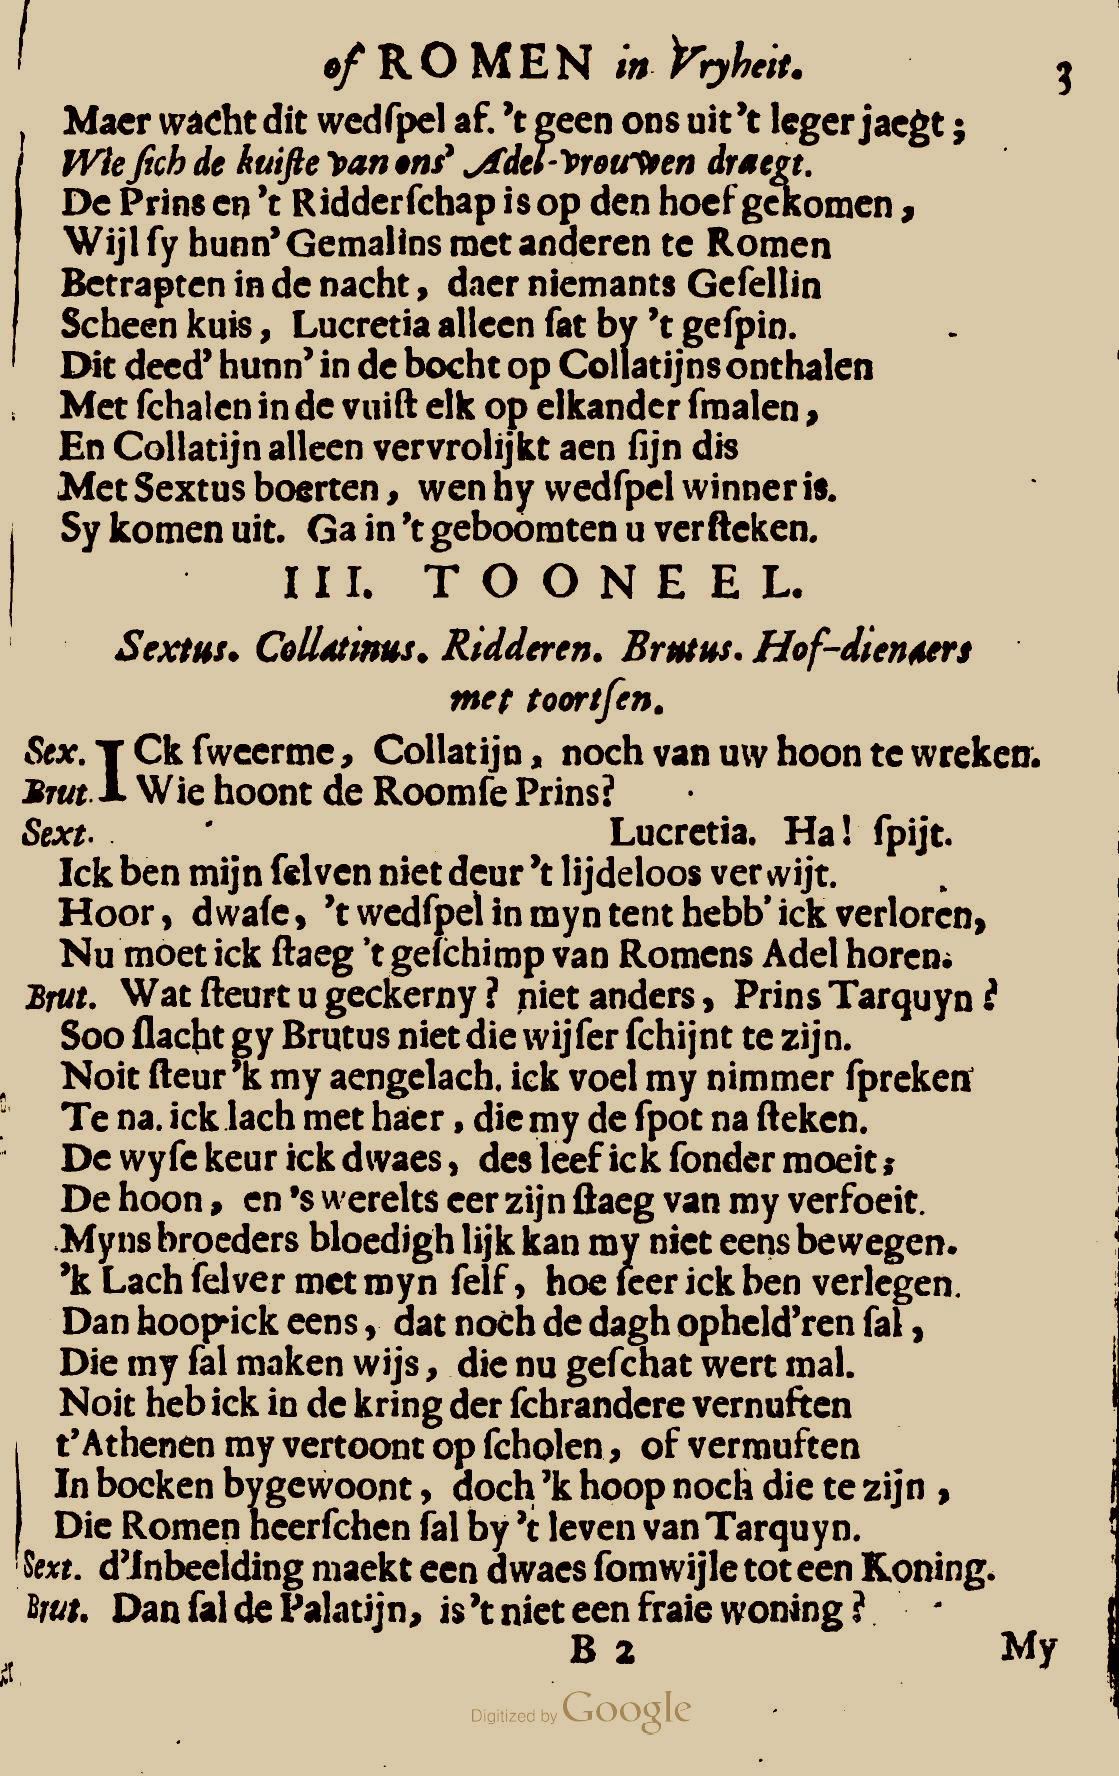 of ROMEN in Vryheit. 3
Maer wacht dit wedſpel af. 't geen ons uit 't leger jaegt;
Wie ſich de kuiſte van ons' Adel-vrouwen draegt.
De Prins en 't Ridderſchap is op den hoef gekomen,
Wijl ſy hunn' Gemalins met anderen te Romen
Betrapten in de nacht, daer niemants Geſellin
Scheen kuis, Lucretia alleen ſat by 't geſpin.
Dit deed' hunn' in de bocht op Collatijns onthalen
Met ſchalen in de vuiſt elk op elkander ſmalen,
En Collatijn alleen vervrolijkt aen ſijn dis
Met Sextus boerten, wen hy wedſpel winner is.
Sy komen uit. Ga in 't geboomten u verſteken.
III. TOONEEL.
Sextus. Collatinus. Ridderen. Brutus. Hof-dienaers
met toortſen.
Sex. ICk ſweerme, Collatijn, noch van uw hoon te wreken.
Brut. Wie hoont de Roomſe Prins?
Sext. Lucretia. Ha! ſpijt.
Ick ben mijn ſelven niet deur 't lijdeloos verwijt.
Hoor, dwaſe, 't wedſpel in myn tent hebb' ick verloren,
Nu moet ick ſtaeg 't geſchimp van Romens Adel horen.
Brut. Wat ſteurt u geckerny? niet anders, Prins Tarquyn?
Soo ſlacht gy Brutus niet die wijſer ſchijnt te zijn.
Noit ſteur 'k my aengelach. ick voel my nimmer ſpreken
Te na. ick lach met haer, die my de ſpot na ſteken.
De wyſe keur ick dwaes, des leef ick ſonder moeit;
De hoon, en 's werelts eer zijn ſtaeg van my verfoeit.
Myns broeders bloedigh lijk kan my niet eens bewegen.
'k Lach ſelver met myn ſelf, hoe ſeer ick ben verlegen.
Dan hoop ick eens, dat noch de dagh opheld'ren ſal,
Die my ſal maken wijs, die nu geſchat wert mal.
Noit heb ick in de kring der ſchrandere vernuften
t'Athenen my vertoont op ſcholen, of vermuften
In bocken bygewoont, doch 'k hoop noch die te zijn,
Die Romen heerſchen ſal by 't leven van Tarquyn.
Sext. d'Inbeelding maekt een dwaes ſomwijle tot een Koning.
Brut. Dan ſal de Palatijn, is 't niet een fraie woning?
B 2 My
Digitized by Google